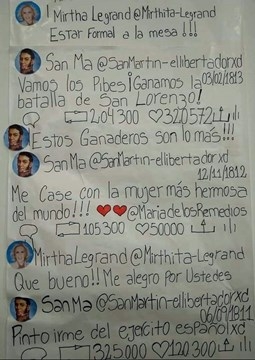 ! Mirtha Legrand @Mirthita-Legrand
Estar Formal a la mesa !!!
San Ma @SanMartin-ellibertadorxd
03/02/1813
Vamos los Pibes¡Ganamos la
batalla de San Lorenzo!
204300 ♡320572
Estos Ganaderos son lo más!!!
San Ma @SanMartin-ellibertadorxd
12/11/1812
Me Case con la mujer más hermosa
del mundo!!! ❤❤@MariadelosRemedios
105300 ♡50000
Mirtha Legrand @Mirthita-Legrand
Que bueno!! Me alegro por Ustedes
San Ma @SanMartin-ellibertadorxd
06/09/1811
Pinto irme del ejercito español xd
325000 ♡120300